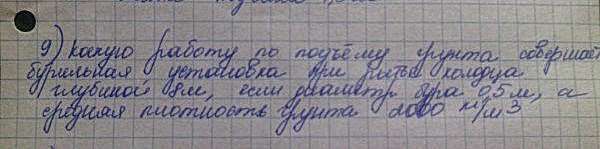 9) какую работу по подъёму грунта совершает
бурильная установка при рытье колодца
глубиной 8м, если диаметр бура 0,5м, а
средняя плотность грунта 2000 кг/м3